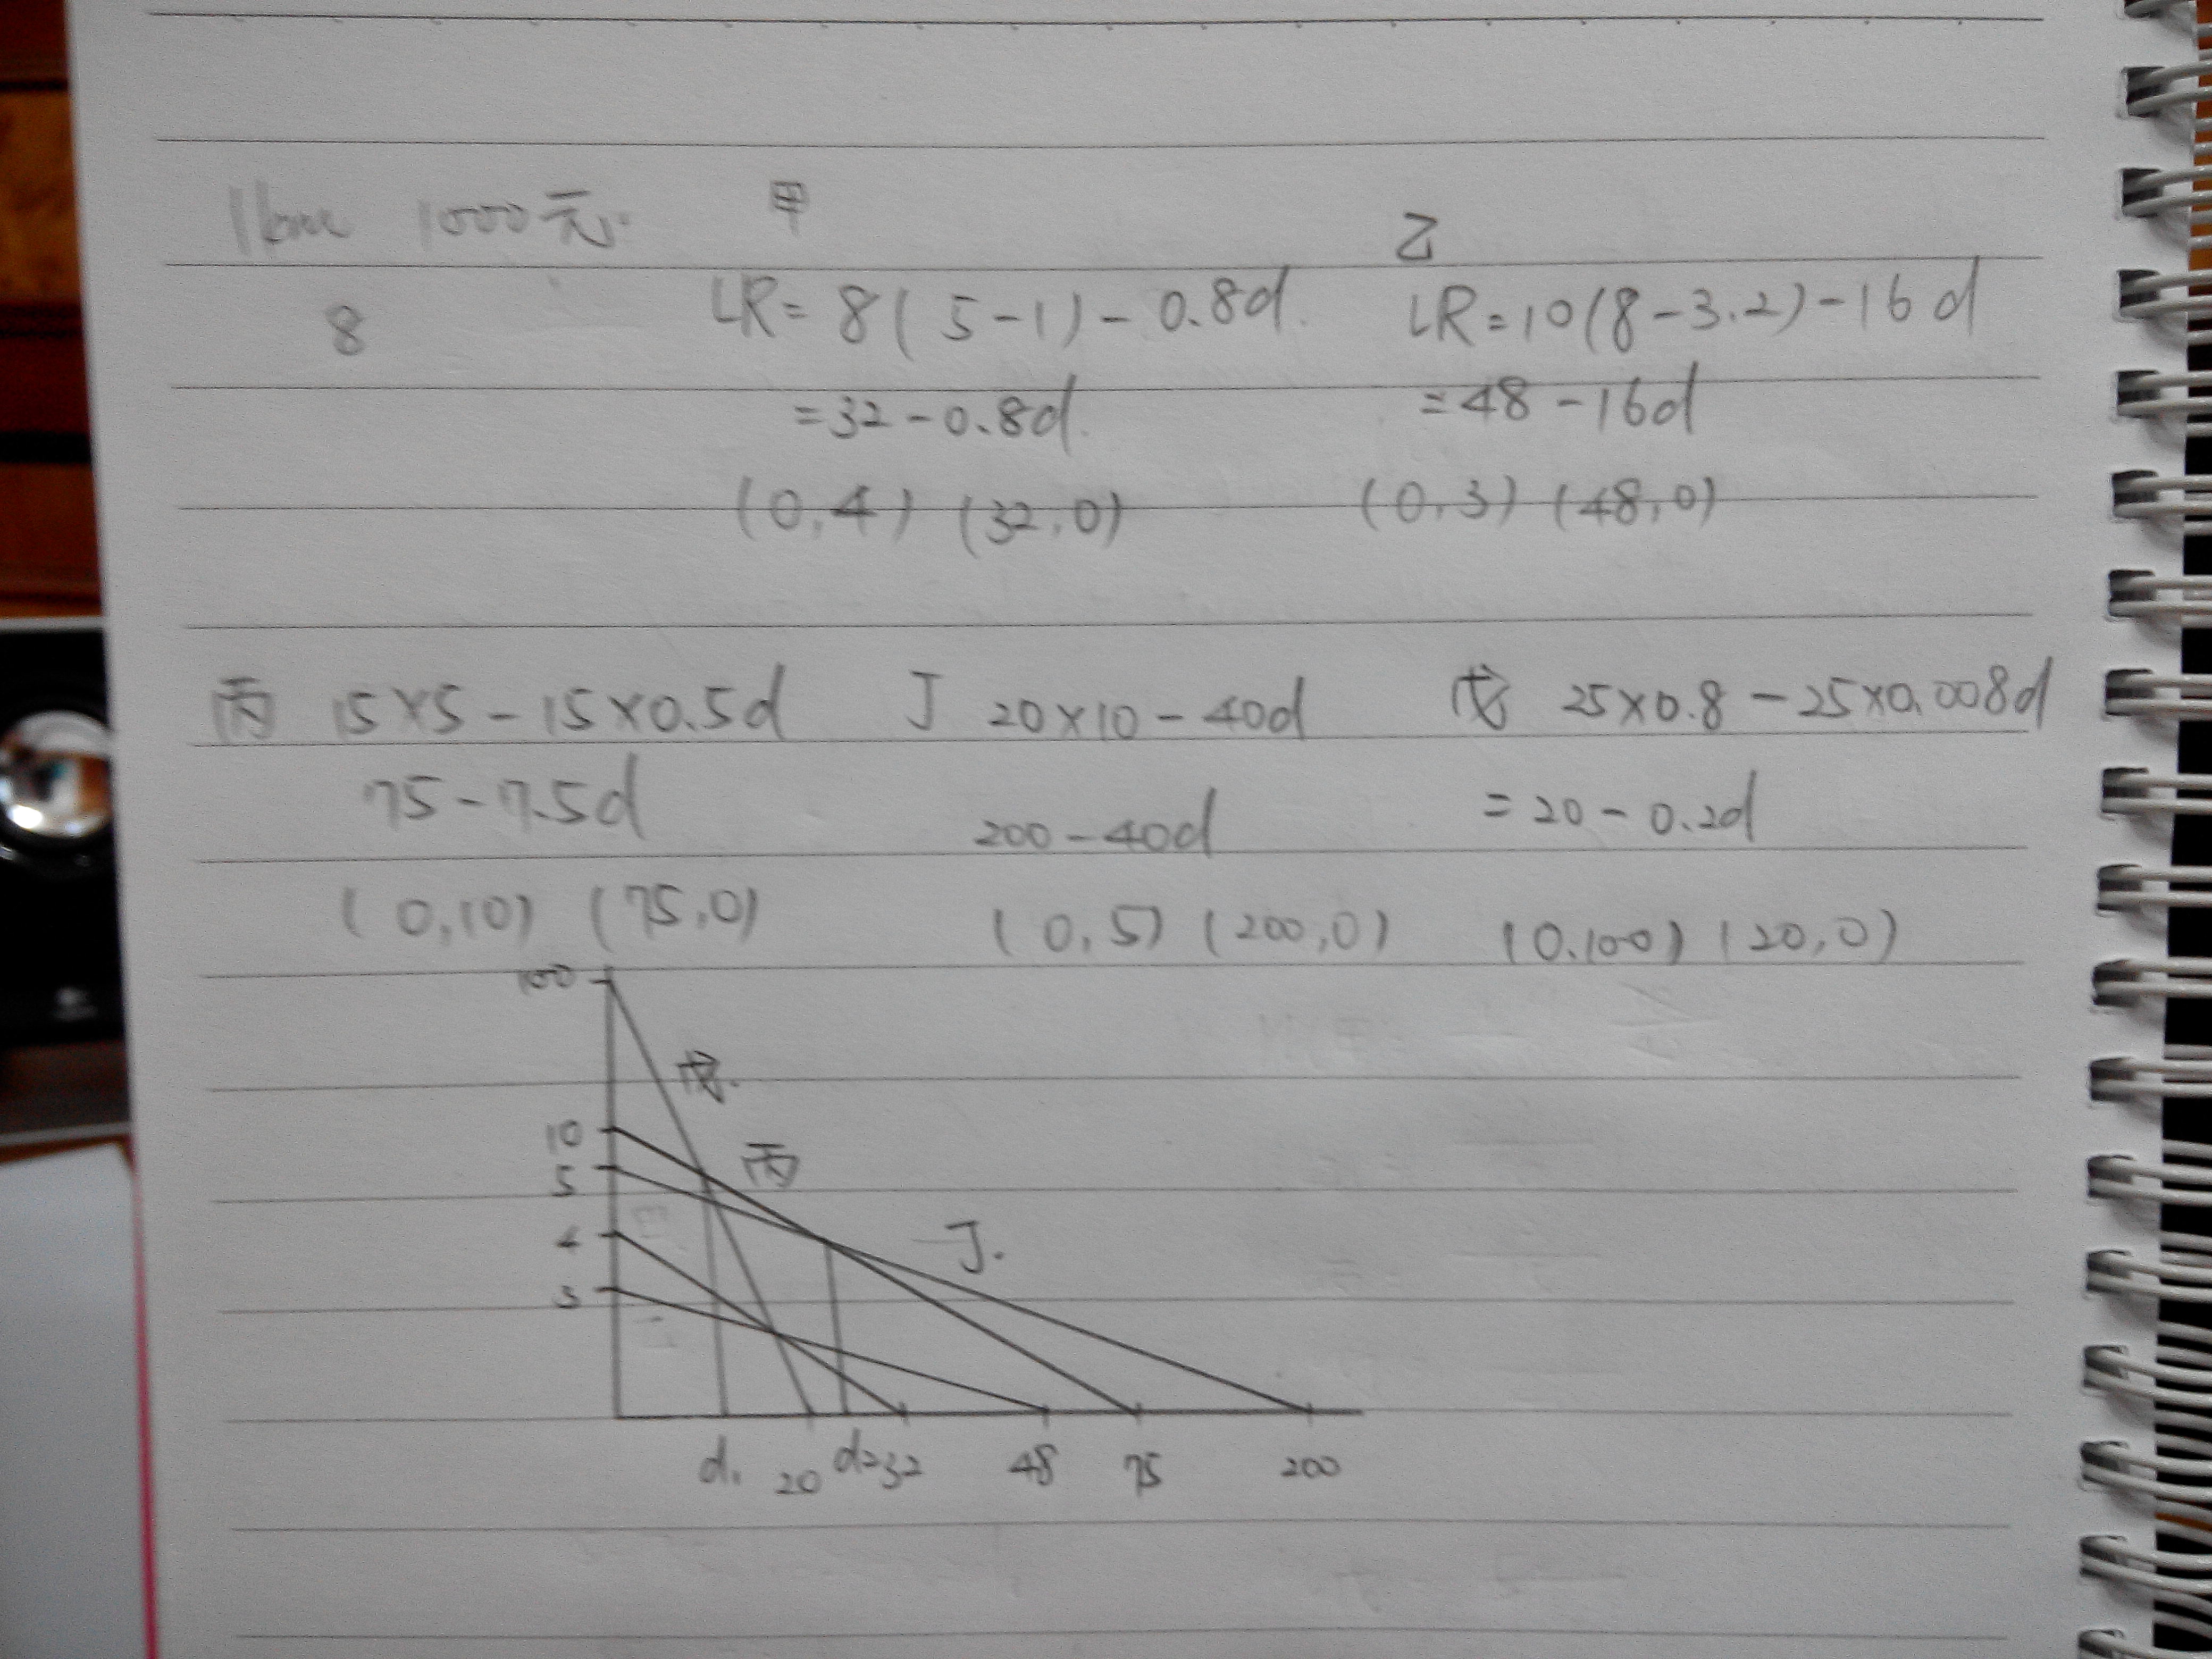 1km 1000元. 甲 乙
8 LR = 8(5-1) - 0.8d. LR = 10(8-3.2) - 16d
= 32 - 0.8d. = 48 - 16d
(0,4) (32,0) (0,3) (48,0)
丙 15×5 - 15×0.5d 丁 20×10 - 40d 戊 25×0.8 - 25×0.008d
75 - 7.5d 200 - 40d = 20 - 0.2d
(0,10) (75,0) (0,5) (200,0) (0.100) (20,0)
100
戊.
10
丙
5
丁.
4
3
d1 20 d2 32 48 75 200